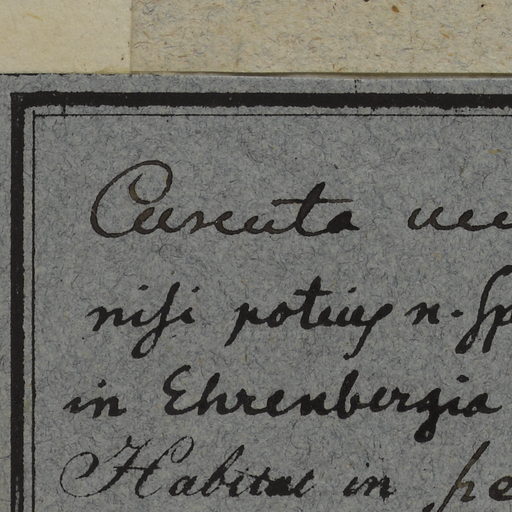 Cuscuta
nisi potius n. Sp
in Ehrenbergia
Habitat in